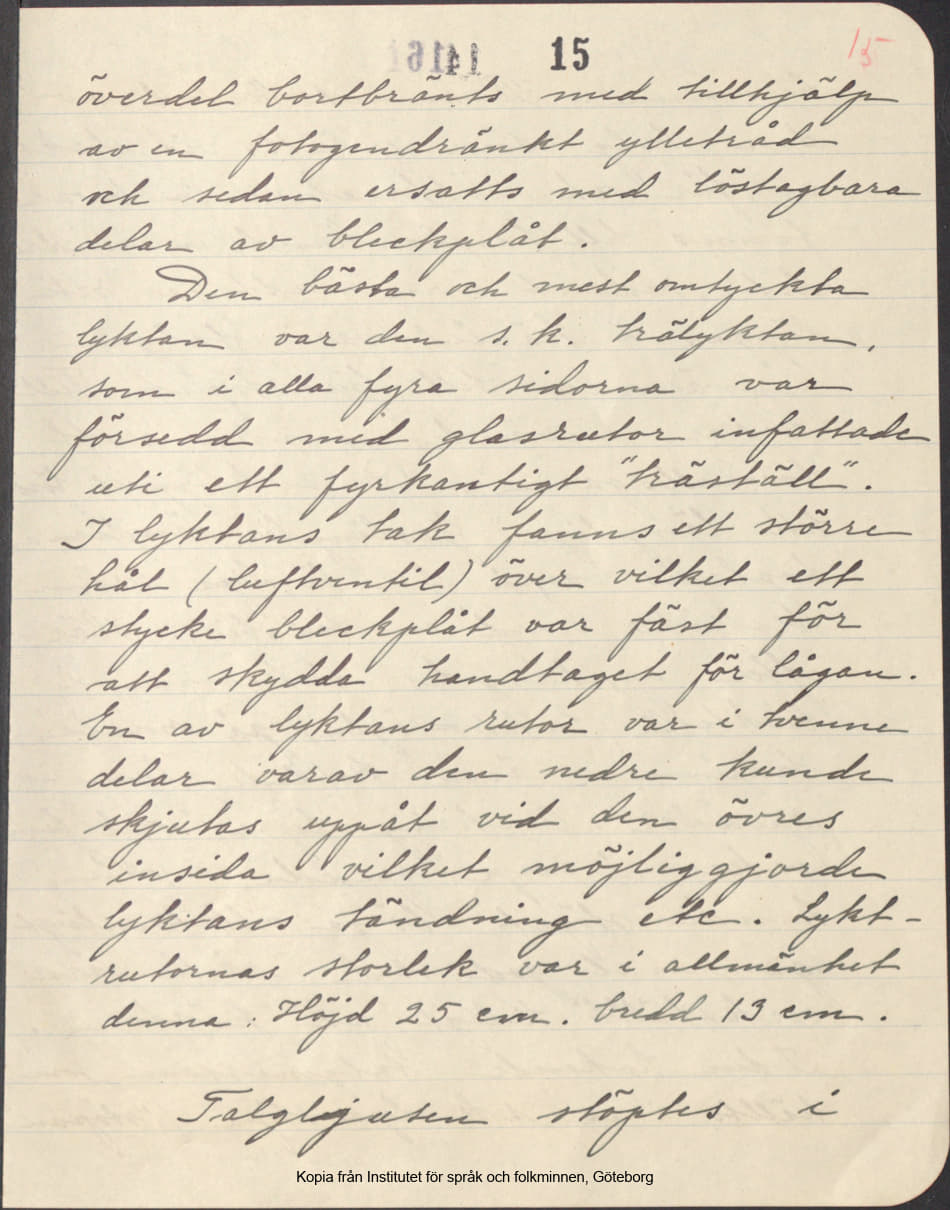 15
15
överdel bortbränts med tillhjälp
av en fotogendränkt ylletråd
och sedan ersatts med löstagbara
delar av bleckplåt.
Den bästa och mest omtyckta
lyktan var den s.k. trälyktan,
som i alla fyra sidorna var
försedd med glasrutor infattade
uti ett fyrkantigt "träställ".
I lyktans tak fanns ett större
hål (luftventil) över vilket ett
stycke bleckplåt var fäst för
att skydda handtaget för lågan.
En av lyktans rutor var i tvenne
delar varav den nedre kunde
skjutas uppåt vid den övres
insida vilket möjliggjorde
lyktans tändning etc. Lykt-
rutornas storlek var i allmänhet
denna: Höjd 25 cm. bredd 13 cm.
Talgljusen stöptes i
Kopia från Institutet för språk och folkminnen, Göteborg